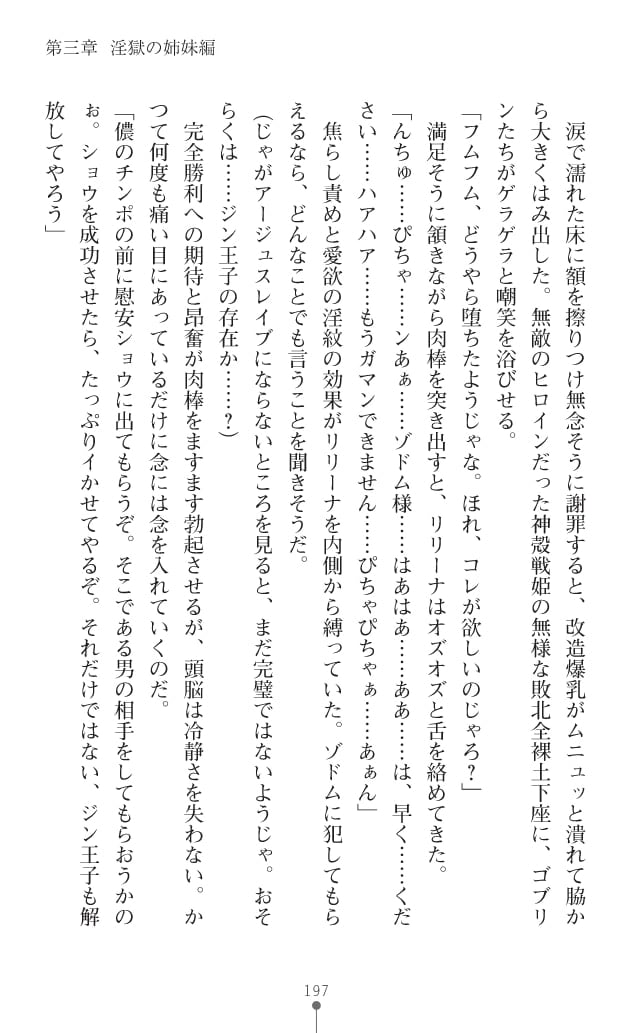 第三章　淫獄の姉妹編
　涙で濡れた床に額を擦りつけ無念そうに謝罪すると、改造爆乳がムニュッと潰れて脇か
ら大きくはみ出した。無敵のヒロインだった神殻戦姫の無様な敗北全裸土下座に、ゴブリ
ンたちがゲラゲラと嘲笑を浴びせる。
「フムフム、どうやら堕ちたようじゃな。ほれ、コレが欲しいのじゃろ？」
　満足そうに頷きながら肉棒を突き出すと、リリーナはオズオズと舌を絡めてきた。
「んちゅ……ぴちゃ……ンあぁ……ゾドム様……はあはあ……ああ……は、早く……くだ
さい……ハアハア……もうガマンできません……ぴちゃぴちゃぁ……あぁん」
　焦らし責めと愛欲の淫紋の効果がリリーナを内側から縛っていた。ゾドムに犯してもら
えるなら、どんなことでも言うことを聞きそうだ。
（じゃがアージュスレイブにならないところを見ると、まだ完璧ではないようじゃ。おそ
らくは……ジン王子の存在か……？）
　完全勝利への期待と昂奮が肉棒をますます勃起させるが、頭脳は冷静さを失わない。か
つて何度も痛い目にあっているだけに念には念を入れていくのだ。
「儂のチンポの前に慰安ショウに出てもらうぞ。そこである男の相手をしてもらおうかの
ぉ。ショウを成功させたら、たっぷりイかせてやるぞ。それだけではない、ジン王子も解
放してやろう」
197